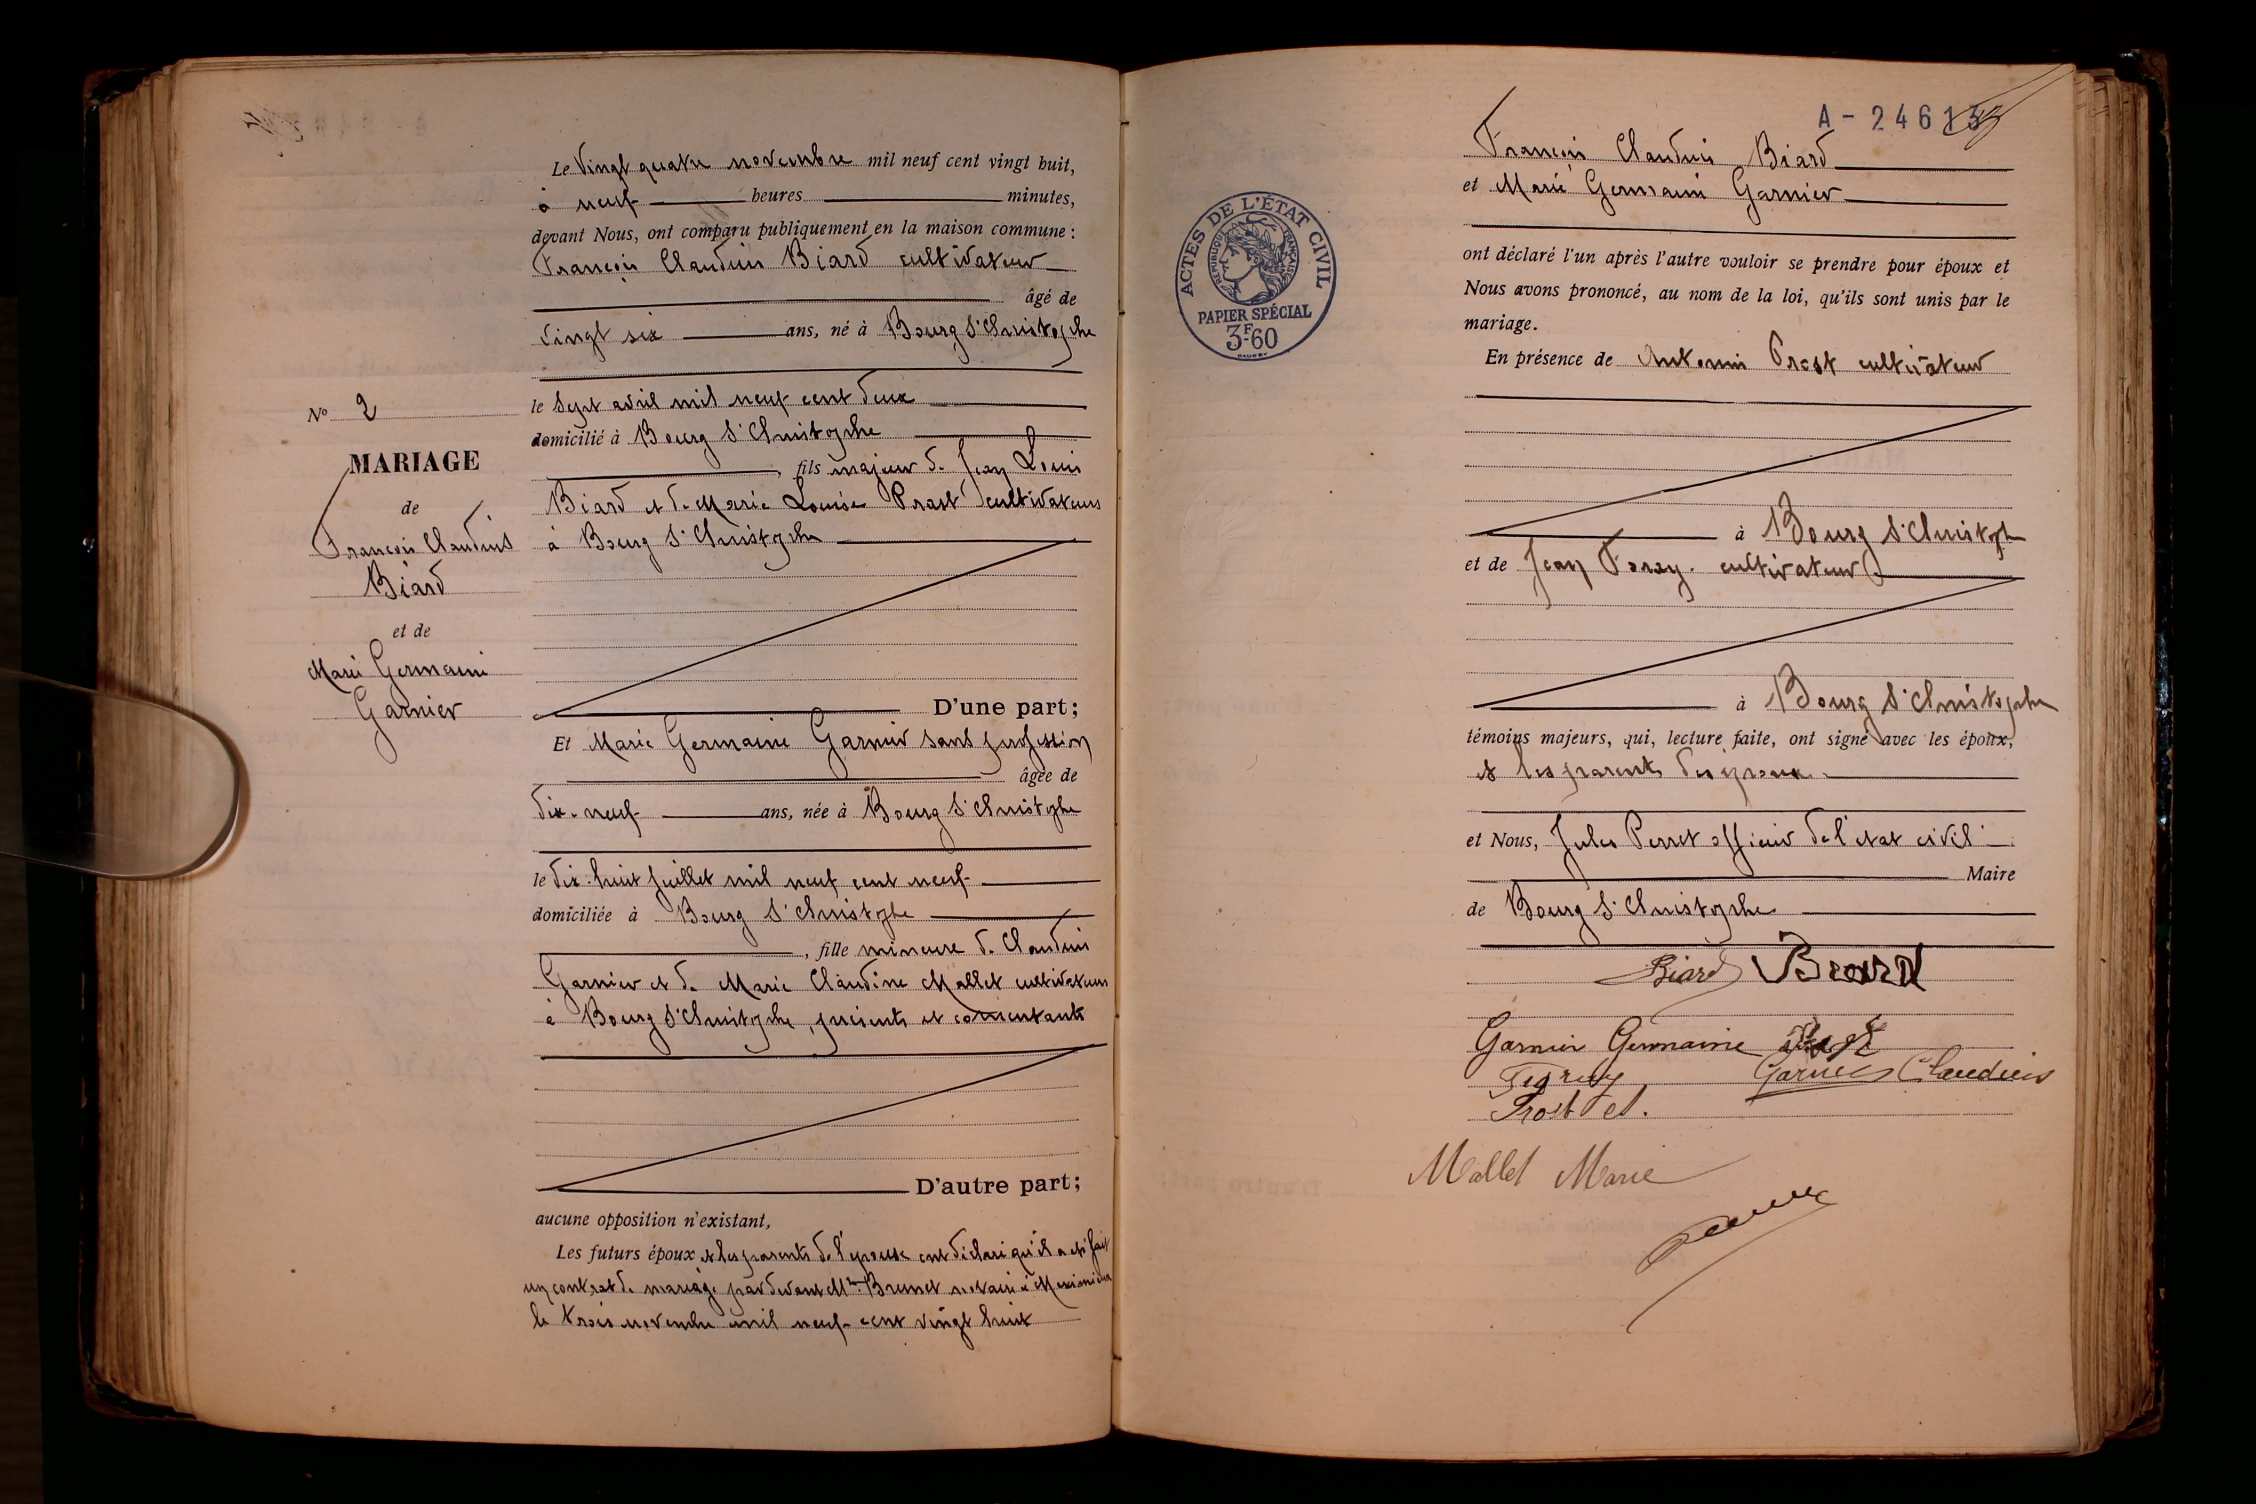 Le Vingt quatre novembre mil neuf cent vingt huit,
à neuf heures minutes,
devant Nous, ont comparu publiquement en la maison commune :
François Claudius Biard cultivateur
âgé de
vingt six ans, né à Bourg St Christophe
le Sept avril mil neuf cent deux
domicilié à Bourg St Christophe
, fils majeur de Jean Louis
Biard et de Marie Louise Prost cultivateurs
à Bourg St Christophe
D'une part;
Et Marie Germaine Garnier sans profession
âgée de
dix-neuf ans, née à Bourg St Christophe
le dix-huit Juillet mil neuf cent neuf
domiciliée à Bourg St Christophe
, fille mineure de Claudius
Garnier et de Marie Claudine Mallet cultivateurs
à Bourg St Christophe, présents et consentants
D'autre part;
aucune opposition n'existant,
Les futurs époux et les parents de l'épouse ont déclaré qu'il a été fait
un contrat de mariage par devant Me Brunet notaire à Meximieux
le trois novembre mil neuf cent vingt huit
No 2
MARIAGE
de
François Claudius
Biard
et de
Marie Germaine
Garnier
A-24613
ACTES DE L'ÉTAT CIVIL
RÉPUBLIQUE FRANÇAISE
PAPIER SPÉCIAL
3F.60
François Claudius Biard
et Marie Germaine Garnier
ont déclaré l'un après l'autre vouloir se prendre pour époux et
Nous avons prononcé, au nom de la loi, qu'ils sont unis par le
mariage.
En présence de Antonin Prost cultivateur
à Bourg St Christophe
et de Jean Ferry cultivateur
à Bourg St Christophe
témoins majeurs, qui, lecture faite, ont signé avec les époux,
et les parents des époux
et Nous, Jules Perret officier de l'état civil
Maire
de Bourg St Christophe
Biard Biard
Garnier Germaine
Garnier Claudius
Prost
Mallet Marie